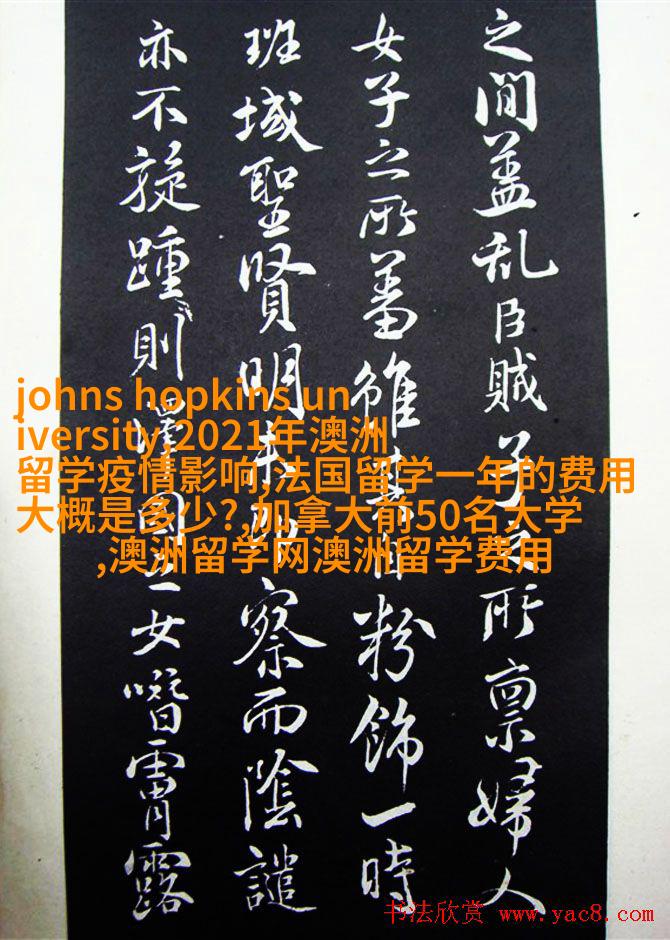 之間蓋乱臣賊子之所禀婦人
女子之所蓄雖粉飾一時
班域聖賢明察而陰譴
亦不旋踵則國女噆霄露
johns hopkins un
iversity,2021年澳洲
留学疫情影响,法国留学一年的费用
大概是多少?,加拿大前50名大学
,澳洲留学网澳洲留学费用
书法欣赏 www.yac8.com